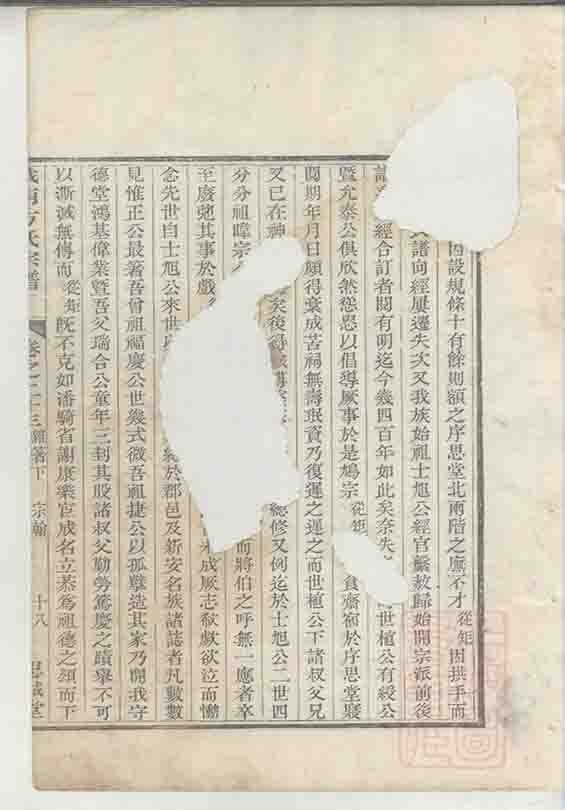 因設規條十有餘則額之序思堂北兩階之廡不才從矩因拱手而
譜向經屢遷失次又我族始祖士旭公經官繫救歸始開宗派前後
經合訂者閱有明迄今幾四百年如此矣奈失 世植公有綬公
暨允泰公俱欣然慫恿以倡導厥事於是鳩宗從矩 食齋宿於序思堂寢
閱期年月日頗得裒成苦祠無壽珉資乃復運之運之而世植公下諸叔父兄
又已在神 矣後得 總修又例迄於士旭公二世四
分分祖暐宗 而將伯之呼無一應者卒
至廢弛其事於戲 未成厥志歔欷欲泣而慟
念先世自士旭公來世 於郡邑及新安名族諸誌者凡數數
見惟正公最著吾曾祖福慶公世幾式微吾祖捷公以孤孽造其家乃開我守
德堂鴻基偉業暨吾父瑞合公童年三封其股諸叔父勤勞篤慶之蹟舉不可
以漸滅無傳而從矩既不克如潘騎省謝康樂官成名立恭為祖德之頌而下
方氏宗譜 卷之二十三雜著下 宗翰 十八 思誠堂